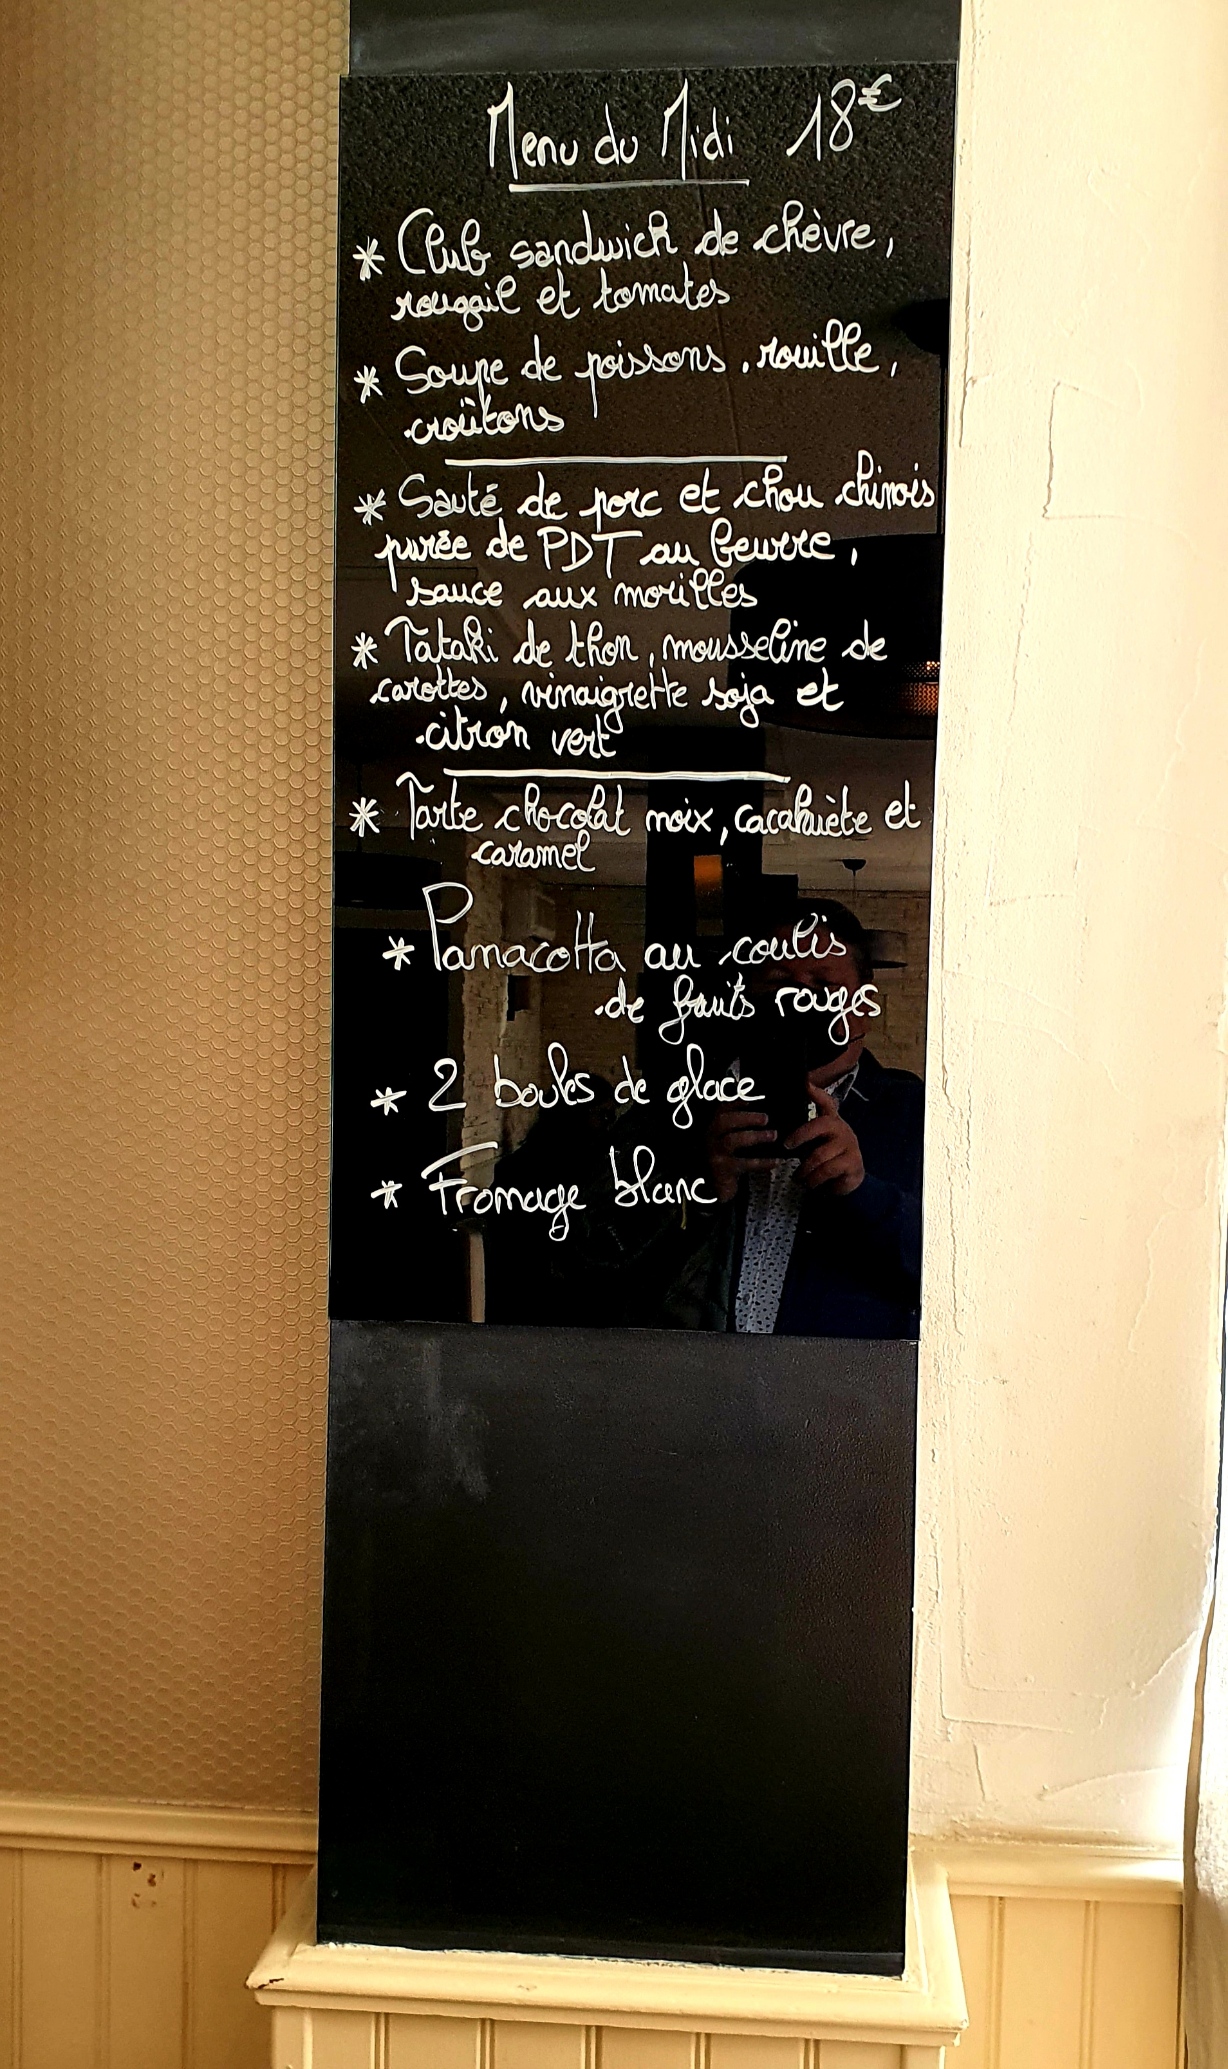 Menu du Midi 18€
* Club sandwich de chèvre,
rougail et tomates
* Soupe de poissons, rouille,
croûtons
* Sauté de porc et chou chinois
purée de PDT au beurre,
sauce aux morilles
* Tataki de thon, mousseline de
carottes, vinaigrette soja et
citron vert
* Tarte chocolat noix, cacahuète et
caramel
* Panacotta au coulis
de fruits rouges
* 2 boules de glace
* Fromage blanc